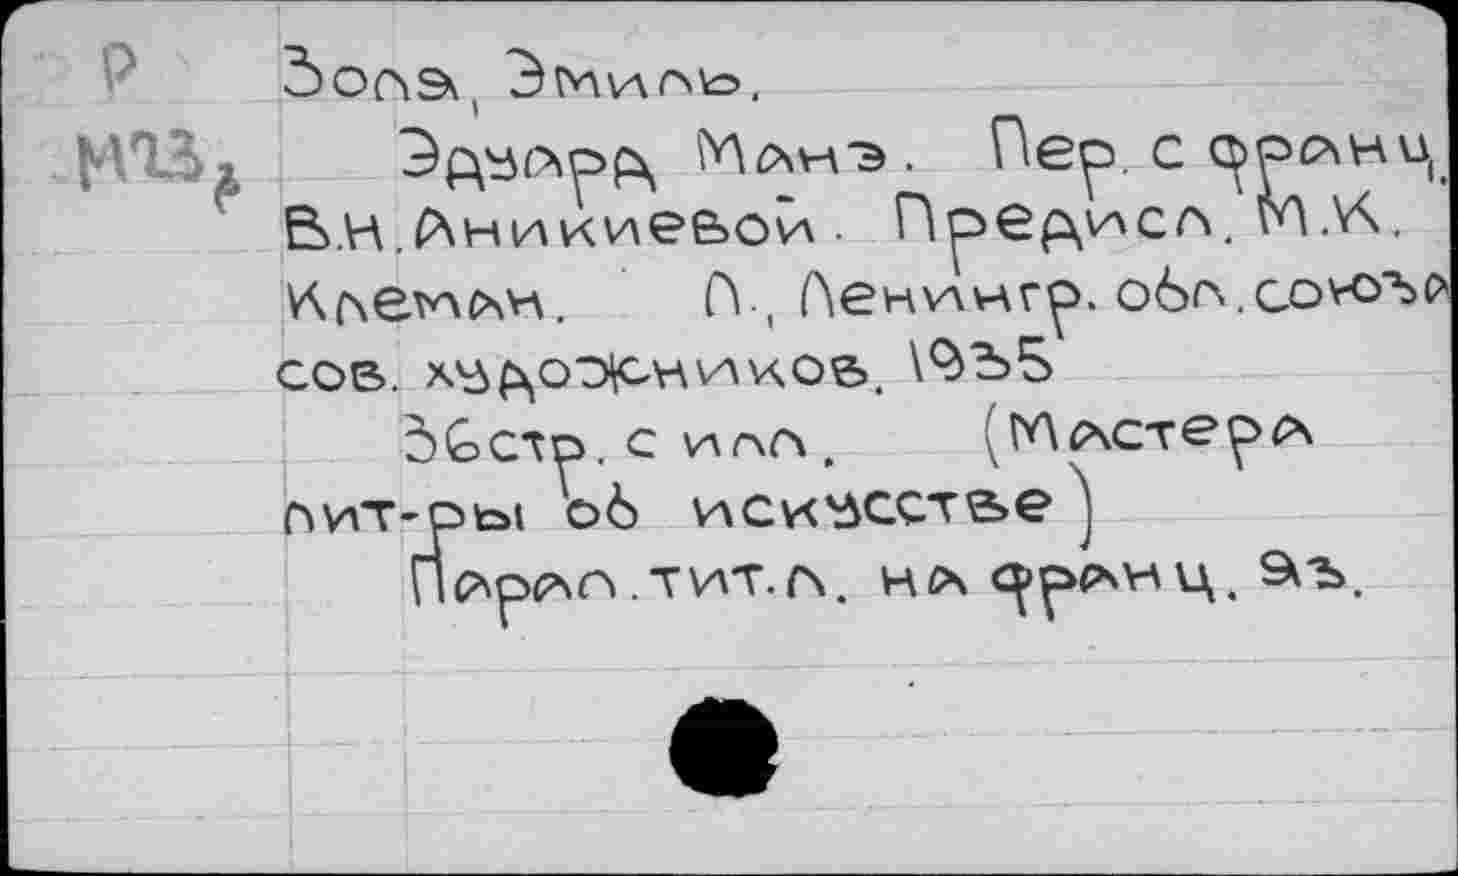 Р Золя, Эмиль.
М23₂ Эдуард Манэ. Пер. с франц.
В.Н.Аникиевой. Предисл. М.К.
Клеман. Л., Ленингр. обл. союза
сов. художников. 1935
36стр. с илл. (Мастера
лит-ры об искусстве)
Парал. тит.л. на франц. яз.